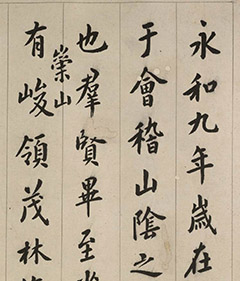 永和九年歲在
于會稽山陰之
也羣賢畢至
崇山
有峻領茂林